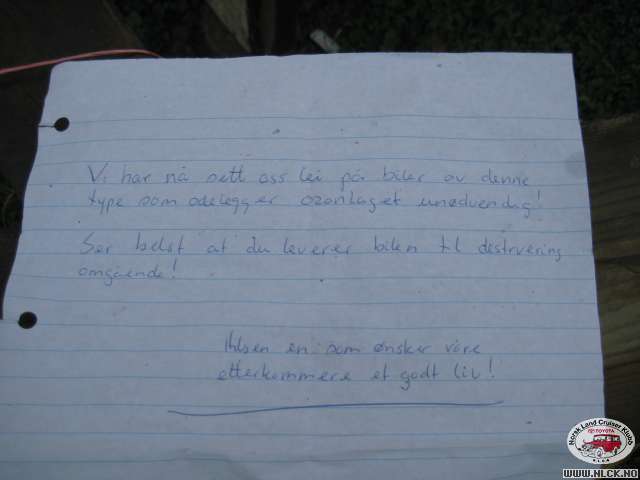 Vi har nå sett oss lei på biler av denne
type som ødelegger ozonlaget unødvendig!
Ser helst at du leverer bilen til destruering
omgående!
Hilsen en som ønsker våre
etterkommere et godt liv!
Norsk Land Cruiser Klubb
TOYOTA
N.L.C.K
WWW.NLCK.NO